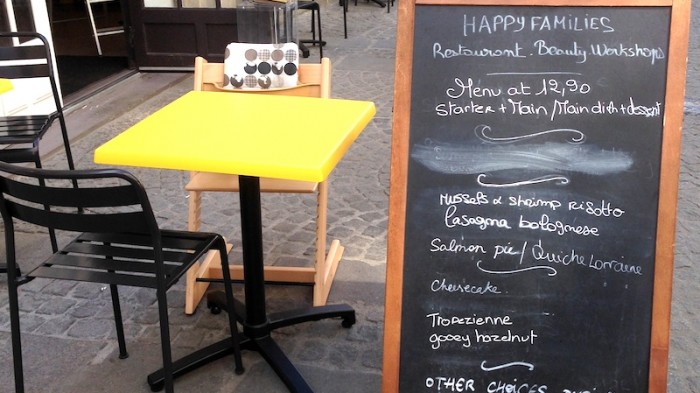 HAPPY FAMILIES
Restaurant. Beauty Workshops
Menu at 12,90
Starter + Main / Main dish + dessert
Mussels & shrimp risotto
lasagna bolognese
Salmon pie / Quiche Lorraine
Cheesecake
Tropezienne
gooey hazelnut
OTHER CHOICES